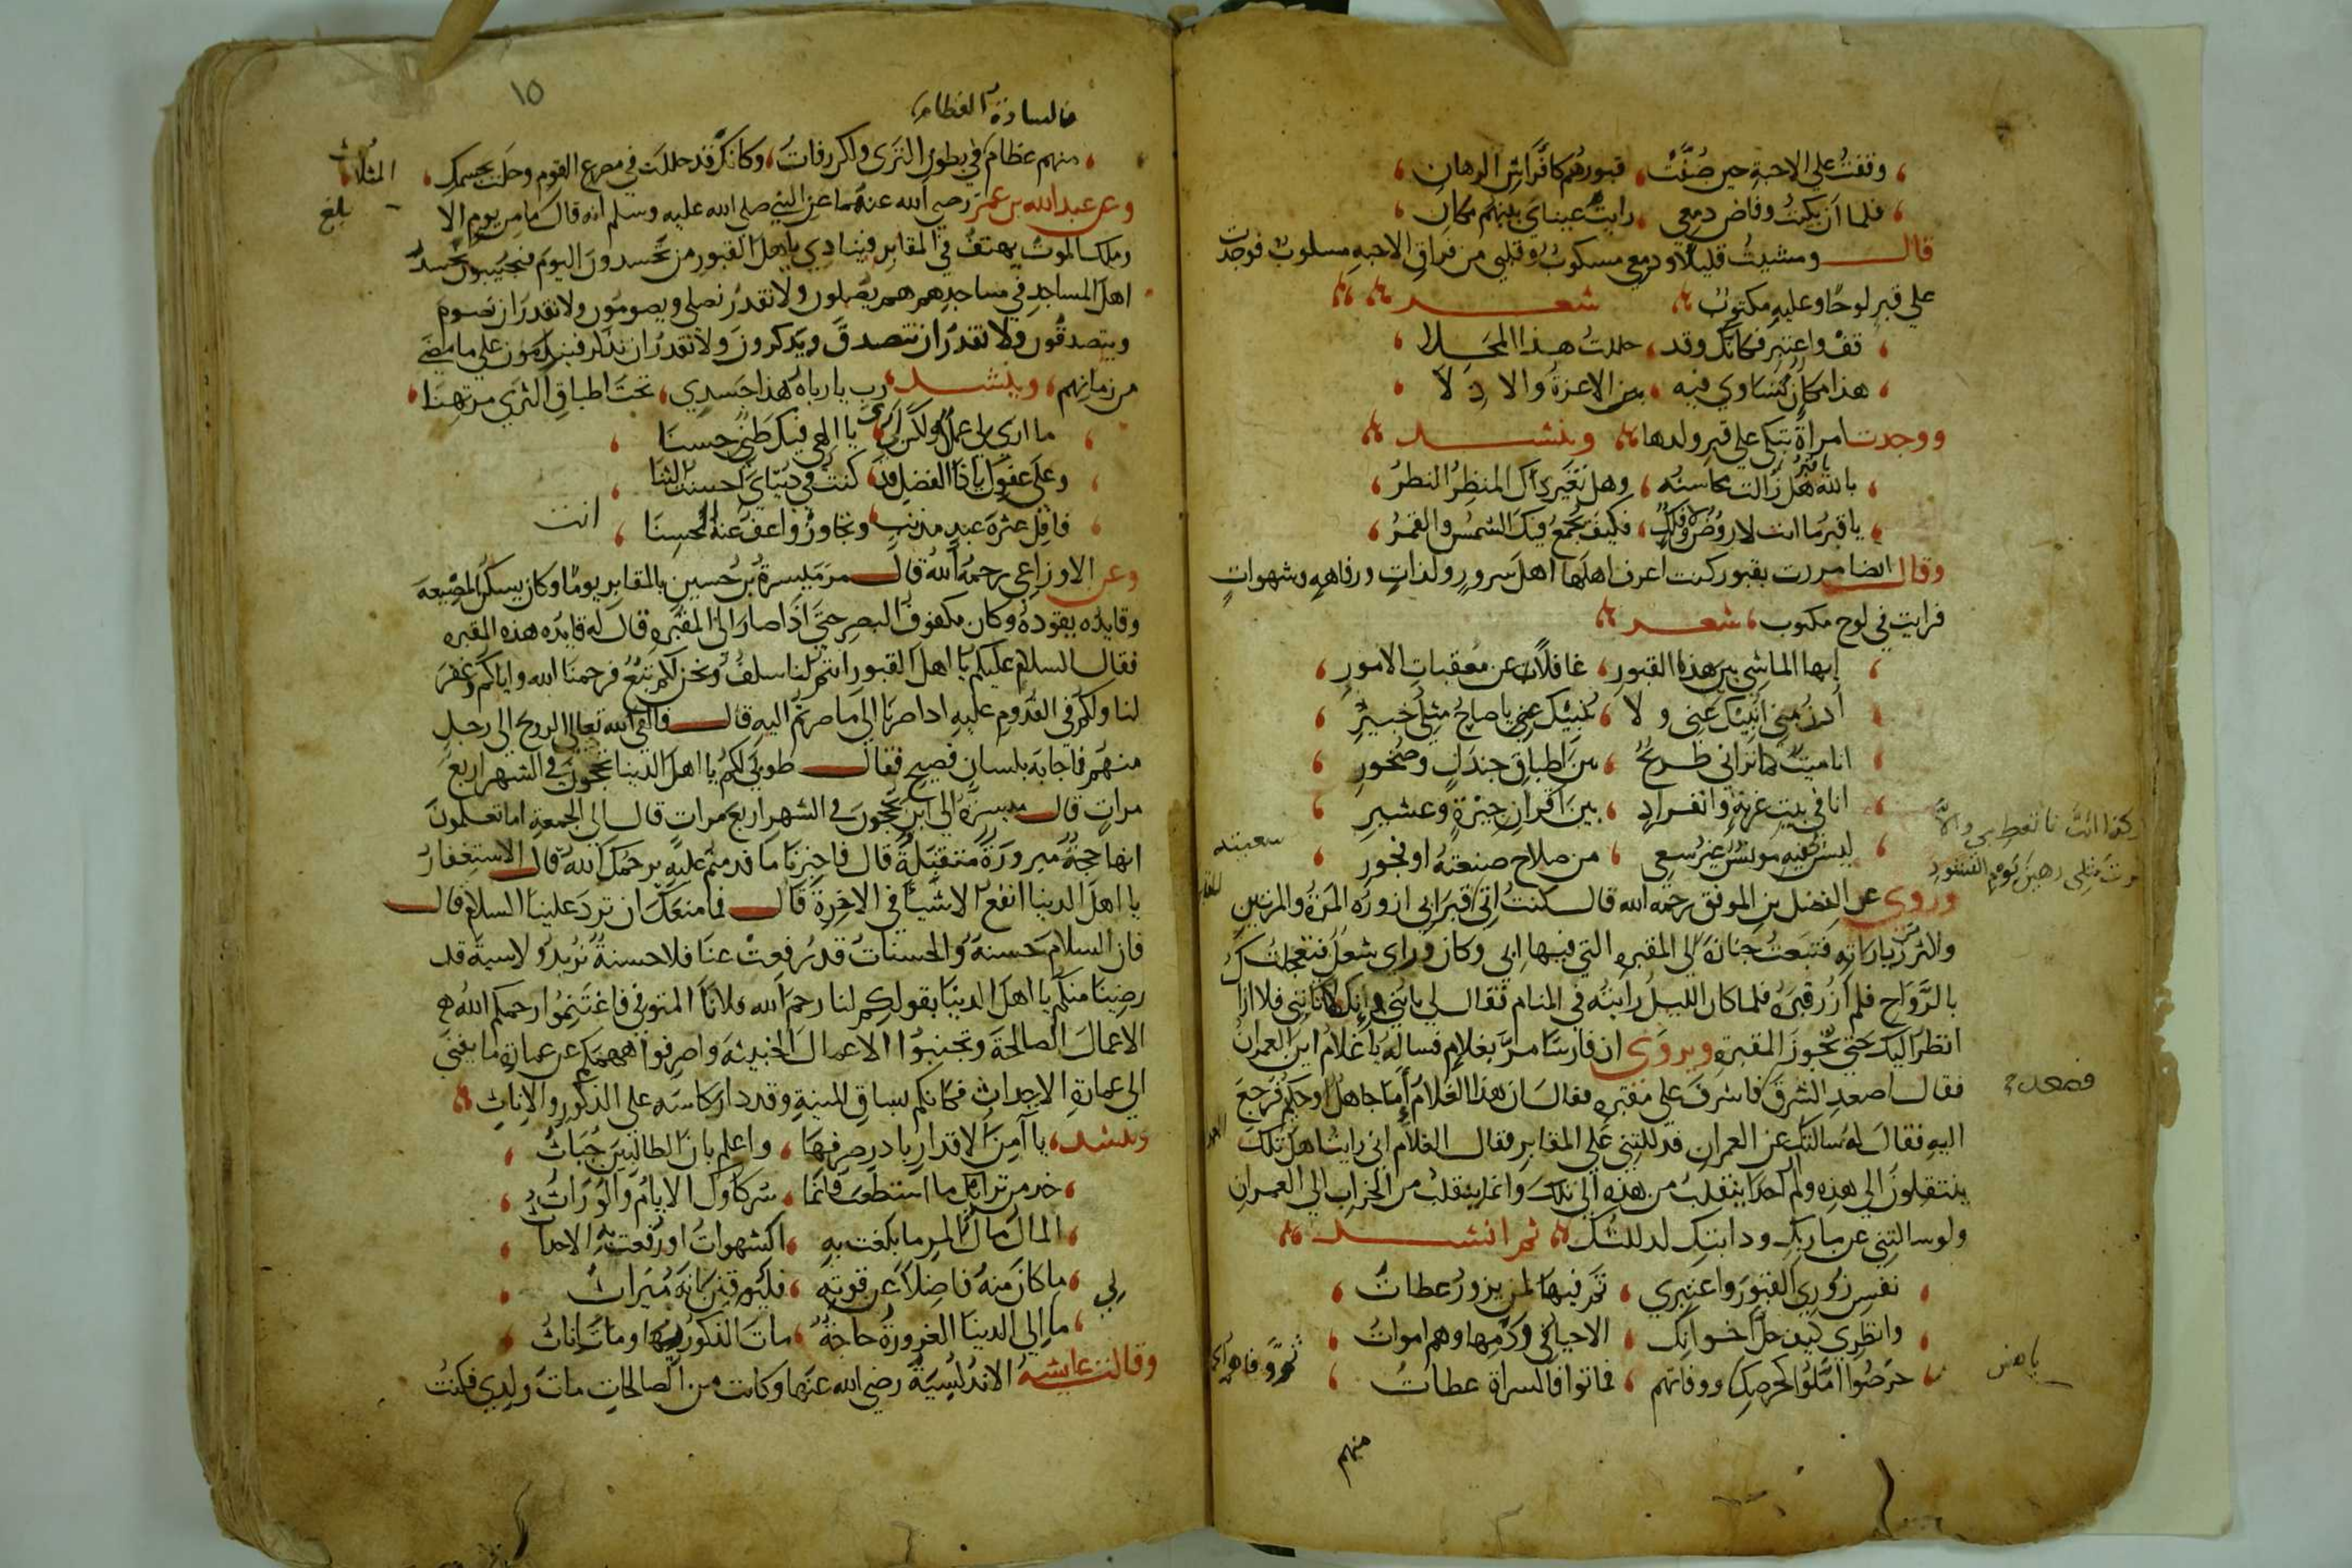 وقفت على الاحبة حين صُفَّتْ قبورهم كافراس الرهان
فلما ان بكيت وفاض دمعي رايت عيناي بينهم مكان
قال ومشيت قليلا ودمعي مسكوب وقلبي من فراق الاحبه مسلوب فوجدت
على قبر لوحًا وعليه مكتوب شعر
قف واعتبر فكانك وقد حللت هذا المحلا
هذا مكان تساوي فيه من الاعزة والاذلا
ووجدت امراة تبكي على قبر ولدها وتنشد
بالله يا قبر هل زالت محاسنه وهل تغير ذاك المنظر النظرُ
يا قبر ما انت لا روض ولا فلك فكيف تجمع فيك الشمس والقمرُ
وقال ايضا مررت بقبور كنت اعرف اهلها اهل سرور ولذات ورفاهه وشهوات
فرايت في لوح مكتوب شعر
ايها الماشي بين هذه القبور غافلا عن معقبات الامور
أدن مني انبيك عني ولا ينبيك عني يا صاح مثل خبير
انا ميت كما تراني طريحُ بين اطباق جندل وصخور
انا في بيت غربة وانفراد بين اقران جيرة وعشير
ليس لي فيه مونس غير سعي من صلاح صنعته او فجور
سعيته
وروى عن الفضل بن الموفق رحمه الله قال كنت اتي قبر ابي ازوره المرة والمرتين
ولاكثر من زياراته فتبعت جنازة الى المقبره التي فيها ابي وكان وراي شغل فتعجلت
بالرواح فلم ازر قبره فلما كان الليل رايته في المنام فقال لي يا بني وانك لتاتيني فلا ازال
انظر اليك حتى تجوز المقبره ويروى ان فارسا مر بغلام فساله يا غلام اين العمران
فقال اصعد الشرف فاشرف على مقبره فقال ان هذا الغلام أما جاهل او حكيم فرجع
فصعد
اليه فقال له سالتك عن العمران فدللتني على المقابر فقال الغلام اني رايت اهل تلك
ينتقلون الى هذه ولم ار احدا ينقلب من هذه الى تلك وانما ينقلب من الخراب الى العمران
ولو سالتني عن ما ربك ودابتك لدللتك ثم انشد
نفس زوري القبور واعتبري ثم فيها لمن يزور عظات
وانظري كيف حل اخوانك الاحيا في وكرمها وهم اموات
حرصوا املوا كحرصك ووفاتهم فماتوا فالسراة عظات
منهم
١٥
فالسادة العظام
منهم عظام في بطون الثرى ولكن رفات وكانك قد حللت في مصرع القوم وحلت بجسمك المثلات
بلغ
وعن عبد الله بن عمر رضي الله عنهما عن النبي صلى الله عليه وسلم انه قال ما من يوم الا
وملك الموت يهتف في المقابر فينادي يا اهل القبور من تحسدون اليوم فيجيبون نحسد
اهل المساجد في مساجدهم هم يصلون ولا نقدر نصلي ويصومون ولا نقدر ان نصوم
ويتصدقون ولا نقدر ان نتصدق ويذكرون ولا نقدر ان نذكر فيندمون على ما مضى
من زمانهم وينشد رب يا رباه هذا جسدي تحت اطباق الثرى مرتهنا
ما ارى لي عملا ولكن لي يا الهي فيك ظني حسنا
وعلى عفوك يا ذا الفضل قد كنت في دنياي احسنت الثنا
فاقل عثرة عبد مذنب وتجاوز واعف عنه المحسنا انت
وعن الاوزاعي رحمه الله قال مر ميسرة بن حسين بالمقابر يوما وكان يسكن المصيصه
وقايده يقوده وكان مكفوف البصر حتى اذا صار الى المقبره قال له قايده هذه المقبره
فقال السلام عليكم يا اهل القبور انتم لنا سلف ونحن لكم تبع فرحمنا الله واياكم وغفر
لنا ولكم في القدوم عليه اذا صرنا الى ما صرتم اليه قال فالقى الله تعالى الروح الى رجل
منهم فاجابه بلسان فصيح فقال طوبى لكم يا اهل الدنيا تحجون في الشهر اربع
مرات قال ميسرة الى اين نحجون في الشهر اربع مرات قال الى الجمعة اما تعلمون
انها حجة مبرورة متقبلة قال فاخبرنا ما قدمتم عليه يرحمك الله قال الاستغفار
يا اهل الدنيا انفع الاشيا في الاخرة قال فما منعك ان ترد علينا السلام قال
فان السلام حسنة والحسنات قد رفعت عنا فلا حسنة نزيد ولا سية قد
رضينا منكم يا اهل الدنيا بقولكم لنا رحم الله فلانا المتوفي فاغتنموا رحمكم الله
الاعمال الصالحة وتجنبوا الاعمال الخبيثه واصرفوا هممكم عن عمارة ما يفنى
الى عمارة الاجداث فكانكم بساقي المنية وقد دار كاسه على الذكور والاناث
وينشد يا آمن الاقدار بادر صرفها واعلم بان الطالبين حثاث
خذ من تراثك ما استطعت فانما شركاوك الايام والوراث
المال مال المرء ما بلغت به الشهوات او رفعت به الاحداث
ما كان منه فاضلا عن قوته فليوقنن بانه ميراث
ما لي الى الدنيا الغرورة حاجة مات الذكور بها ومات اناث
وقالت عايشه الاندلسية رضي الله عنها وكانت من الصالحات مات ولدي فكنت